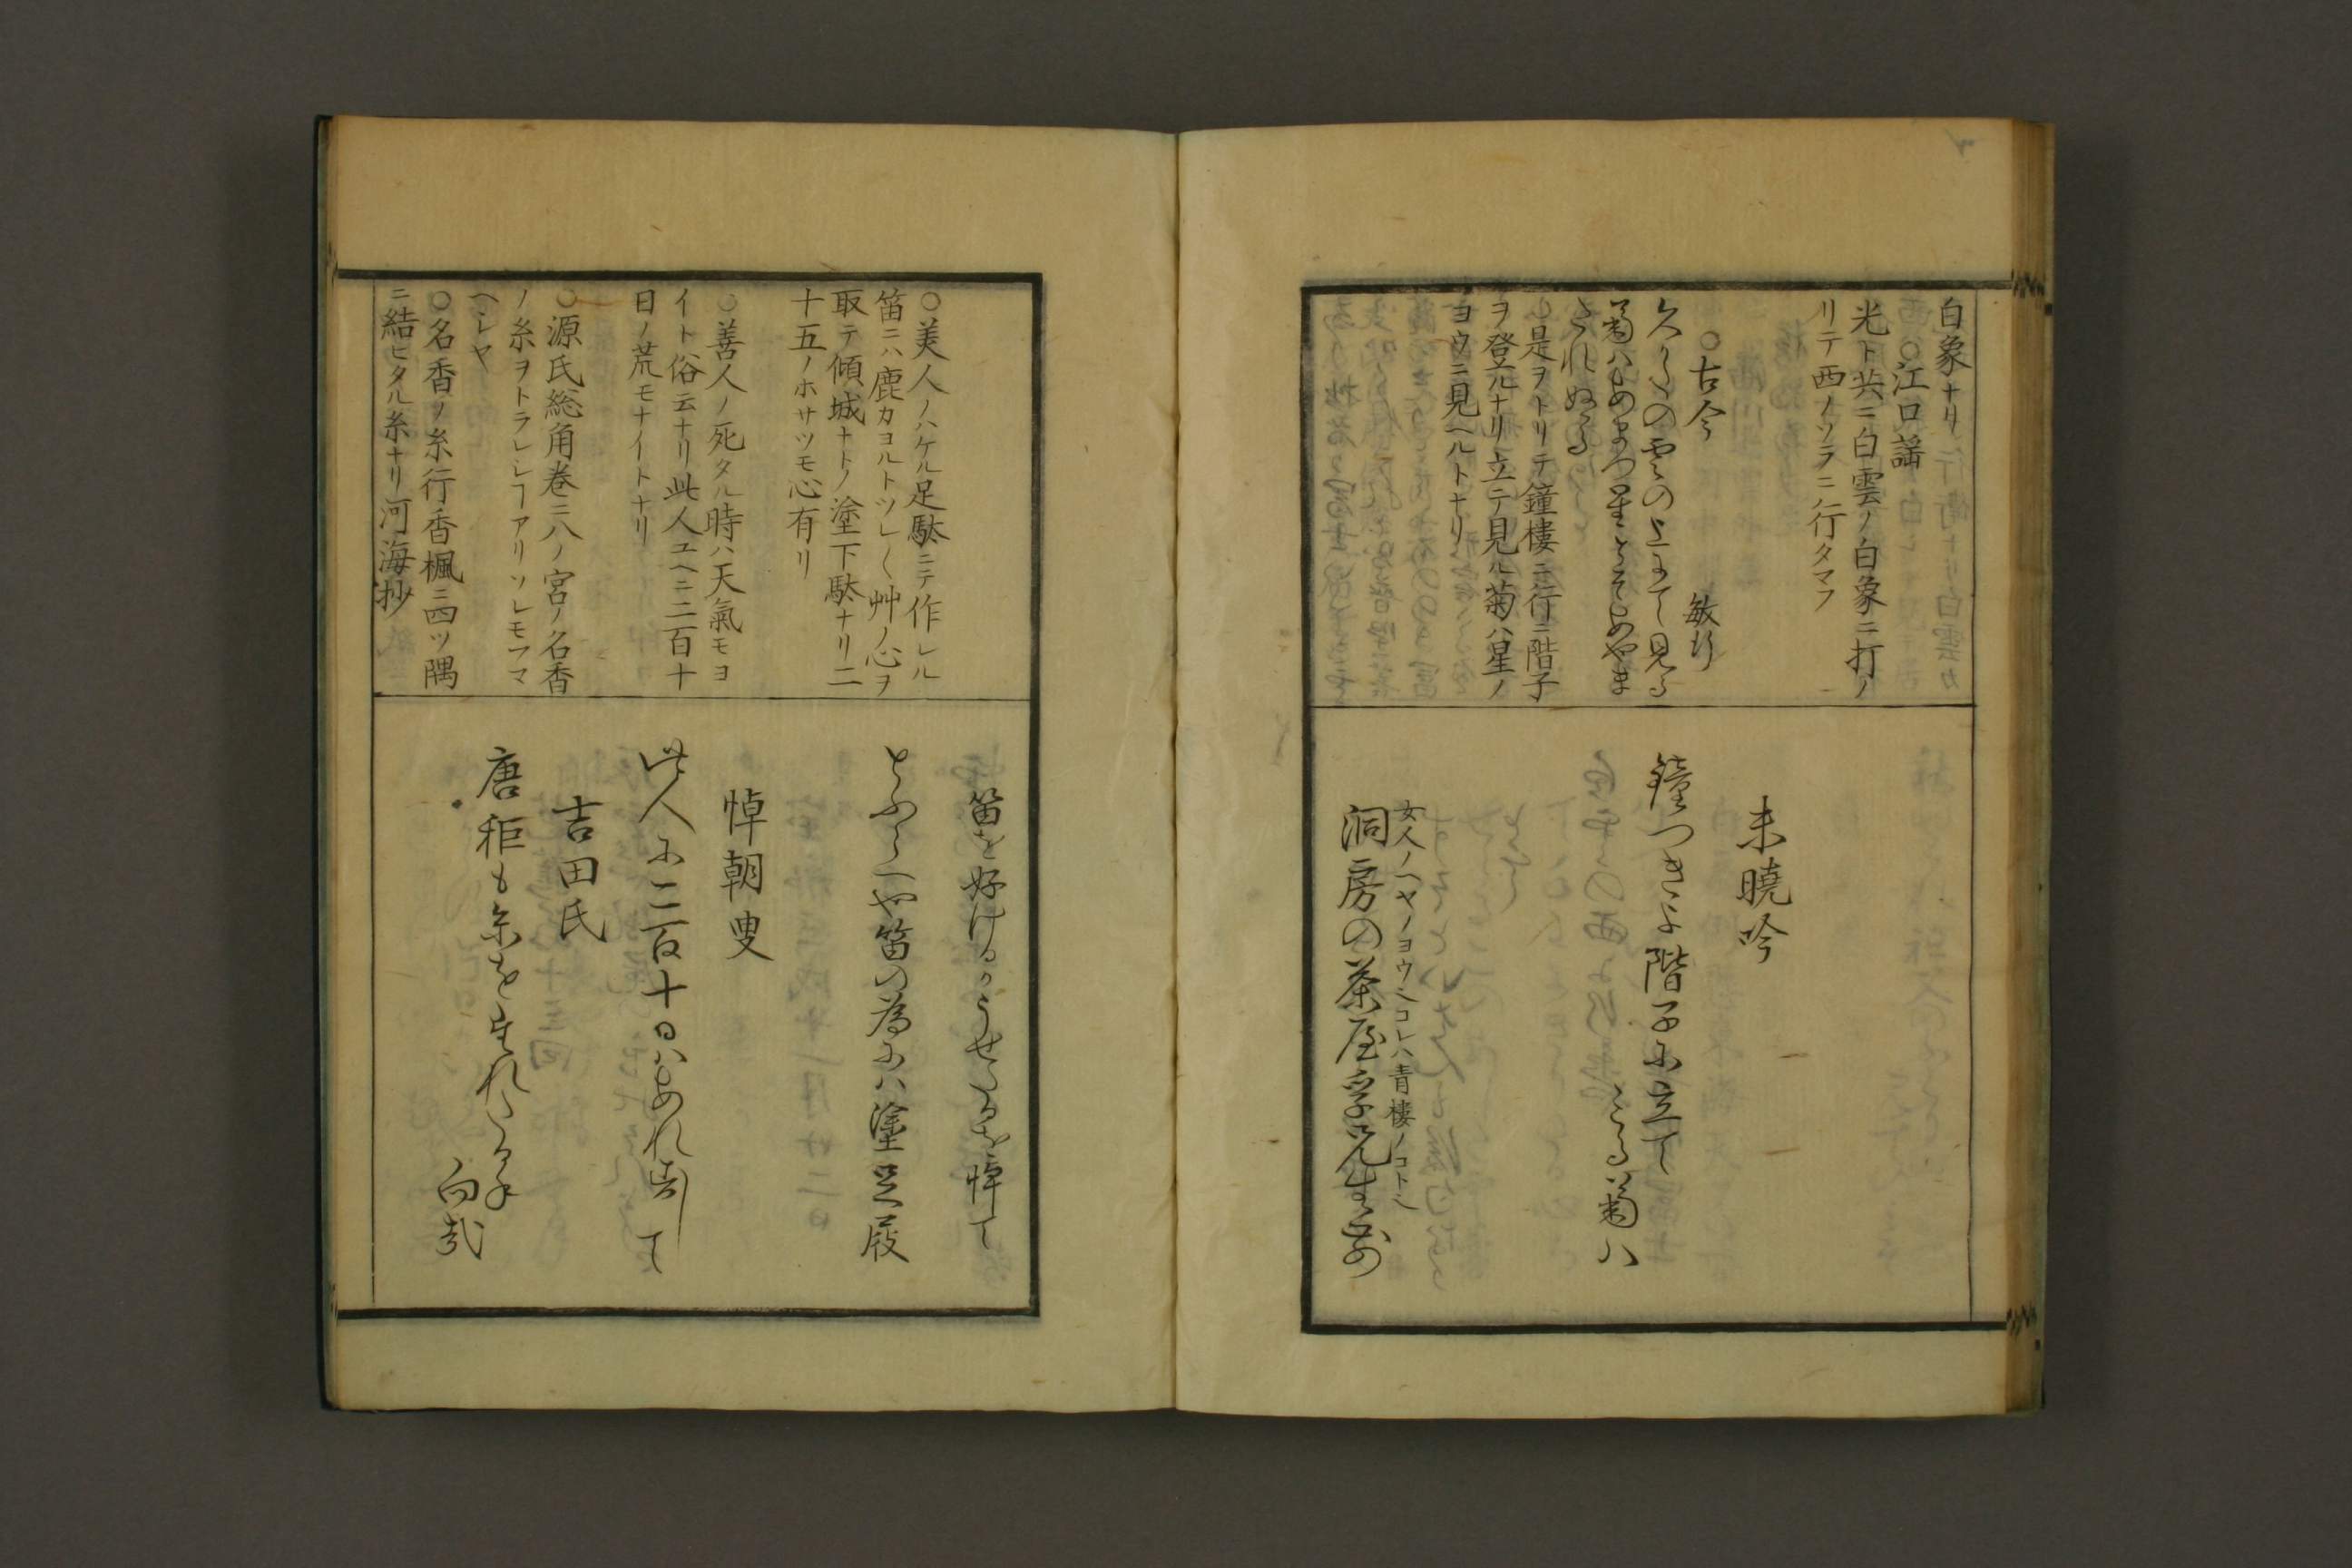 白象ナリ
○江口謡
光ト共ニ白雲ノ白象ニ打ノ
リテ西ノソラニ行タマフ
○古今 敏行
久かたの雲の上にて見る
菊ハあまつ星とそあやま
たれぬる
是ヲトリテ鐘樓ニ行ニ階子
ヲ登ルナリ立テ見ル菊ハ星ノ
ヨウニ見ヘルトナリ
未曉吟
鐘つきよ階子に立て
こる菊ハ
女人ノヘヤノヨウ也コレハ青樓ノコト也
洞房の茶屋
○美人ノハケル足駄ニテ作レル
笛ニハ鹿カヨルトツレ〱艸ノ心ヲ
取テ傾城ナトノ塗下駄ナリ二
十五ノホサツモ心有リ
○善人ノ死タル時ハ天氣モヨ
イト俗云ナリ此人ユヘニ二百十
日ノ荒モナイトナリ
○源氏総角巻ニ八ノ宮ノ名香
ノ糸ヲトラレシヿアリソレモアマ
ヘシヤ
○名香ノ糸行香楓ニ四ツ隅
ニ結ヒタル糸ナリ河海抄
笛を好けるかうせたるを悼て
とふらへや笛の為にハ塗足履
悼朝叟
此人に二百十日ハあれ
て
吉田氏
唐秬も糸を